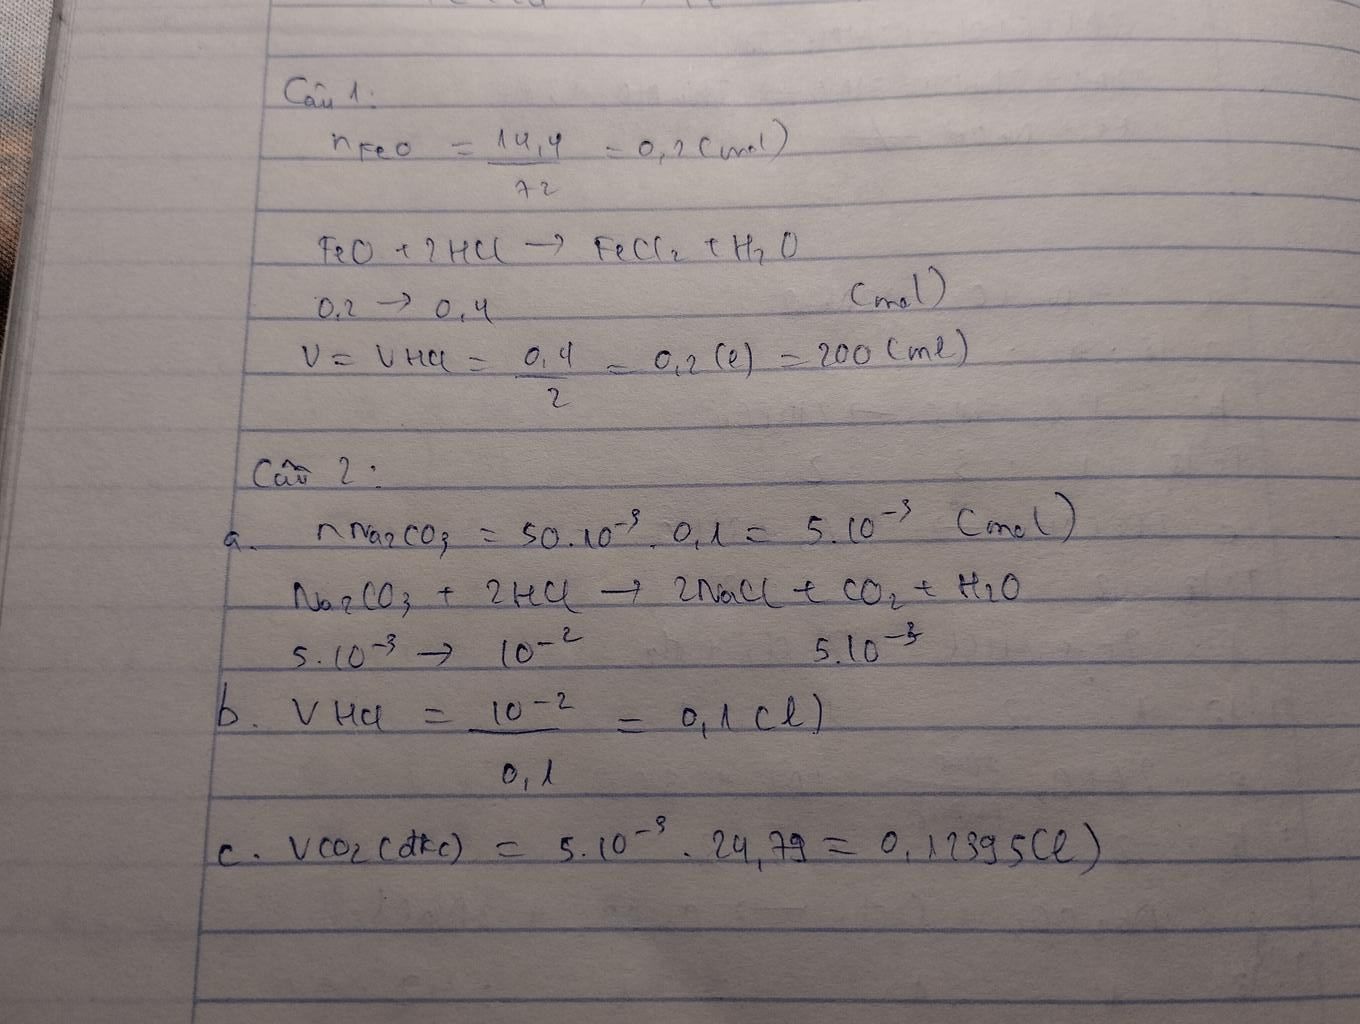 Câu 1:
nFeO = 14,4/72 = 0,2 (mol)
FeO + 2HCl → FeCl₂ + H₂O
0,2 → 0,4 (mol)
V = VHCl = 0,4/2 = 0,2 (l) = 200 (ml)
Câu 2:
a. nNa₂CO₃ = 50.10⁻³. 0,1 = 5.10⁻³ (mol)
Na₂CO₃ + 2HCl → 2NaCl + CO₂ + H₂O
5.10⁻³ → 10⁻² 5.10⁻³
b. VHCl = 10⁻²/0,1 = 0,1 (l)
c. VCO₂ (đkc) = 5.10⁻³ . 24,79 = 0,12395 (l)